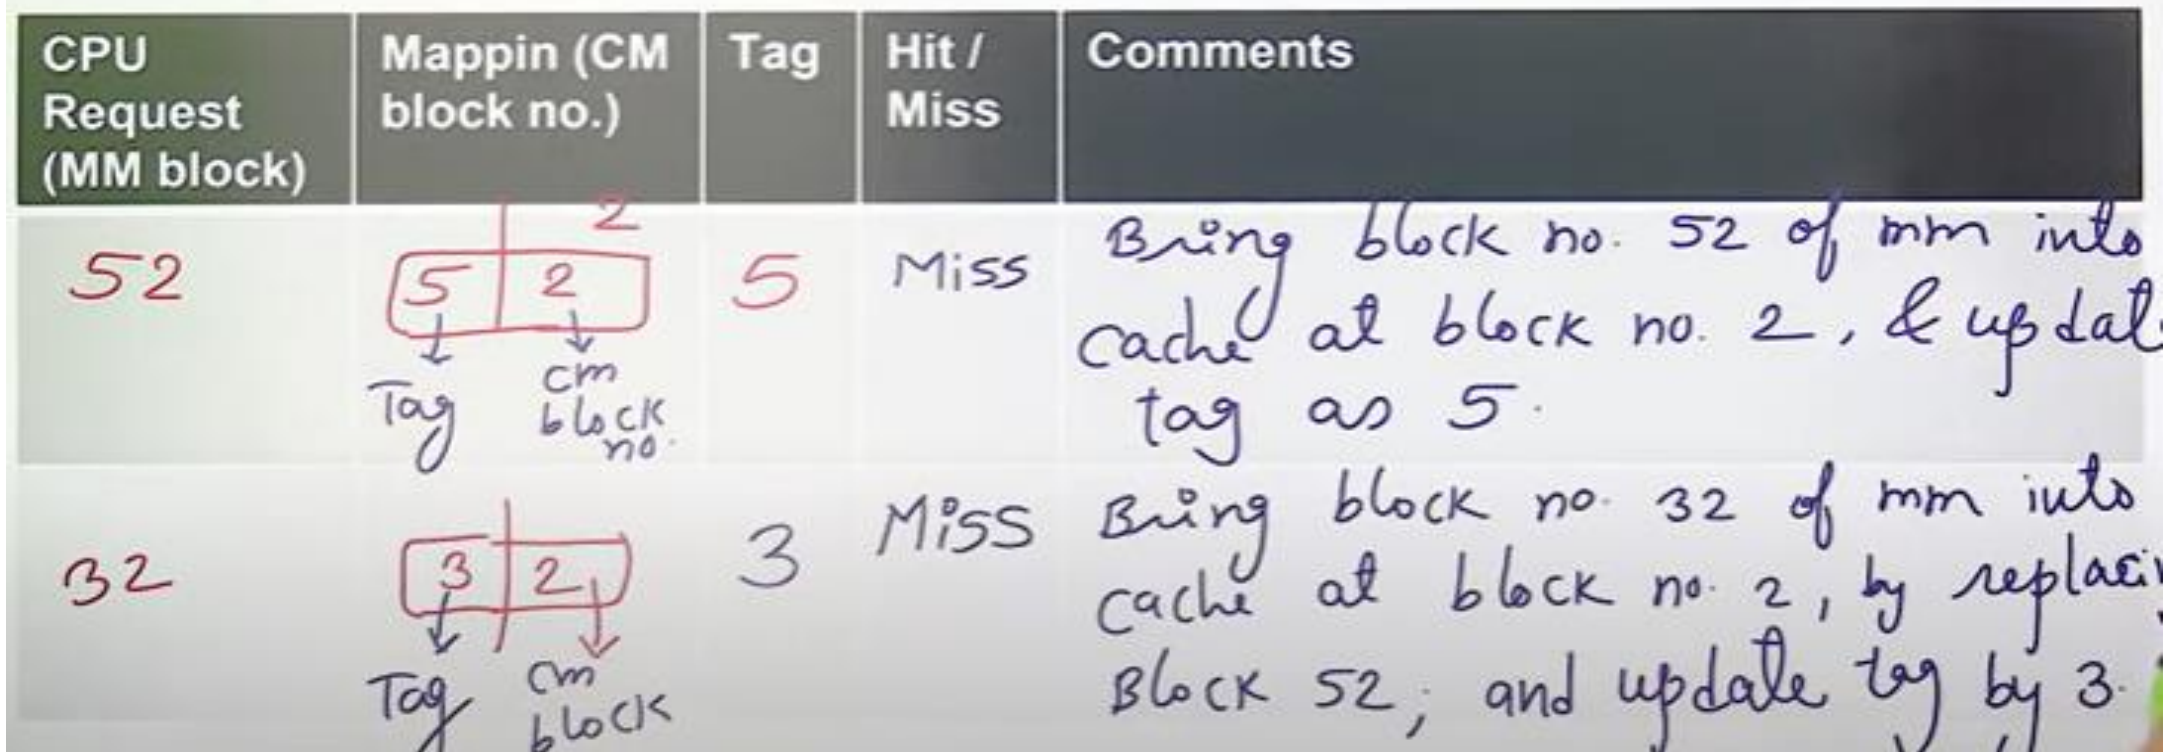 CPU Request (MM block)
Mappin (CM block no.)
Tag
Hit / Miss
Comments
52
2
5 2
Tag
cm block no.
5
Miss
Bring block no. 52 of mm into
cache at block no. 2, & updat
tag as 5.
32
3 2
Tag
cm block
3
Miss
Bring block no. 32 of mm into
cache at block no. 2, by replacin
Block 52; and update tag by 3.